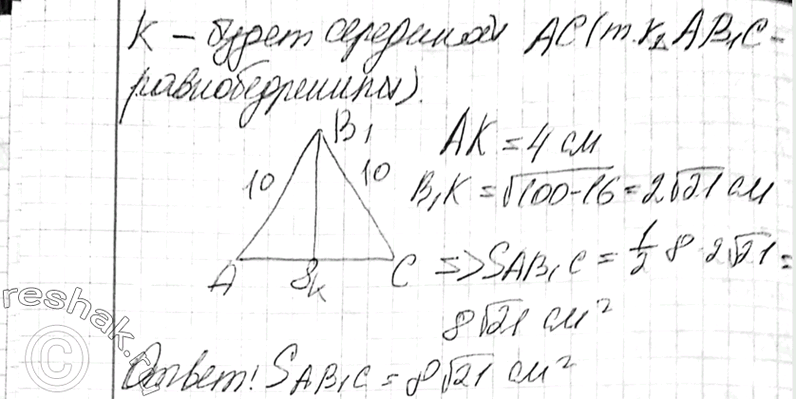 K – будет серединой AC (т.к. AB₁C –
равнобедренный).
B₁
AK = 4 см
10
10
B₁K = √100-16 = 2√21 см
A
8
K
C
=> S AB₁C = 1/2 8 · 2√21 =
8√21 см²
Ответ: S AB₁C = 8√21 см²
© reshak.ru